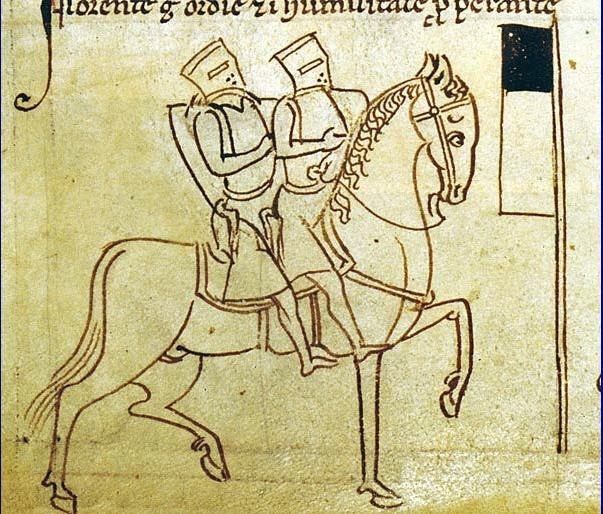 florente g ordie ⁊ i humilitate ꝓsperante